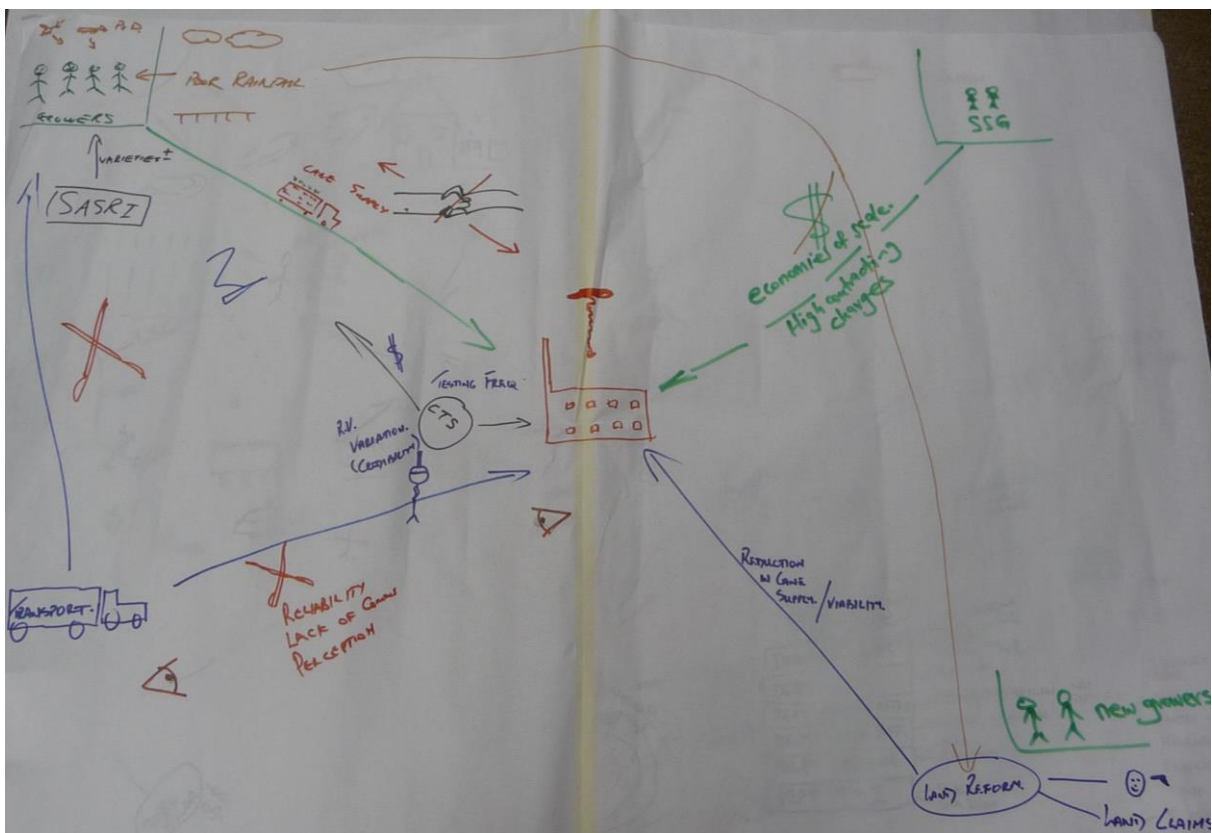 P&D.
POOR RAINFALL
GROWERS
VARIETIES ±
SASRI
CANE
SUPPLY
SSG
$
economies of scale.
High contracting
charges
$
TESTING FREQ.
CTS
R.V.
VARIATION.
(CREDIBILITY)
TRANSPORT.
RELIABILITY
LACK OF COMMS
PERCEPTION
REDUCTION
IN CANE
SUPPLY/VIABILITY.
new growers
LAND REFORM.
LAND CLAIMS